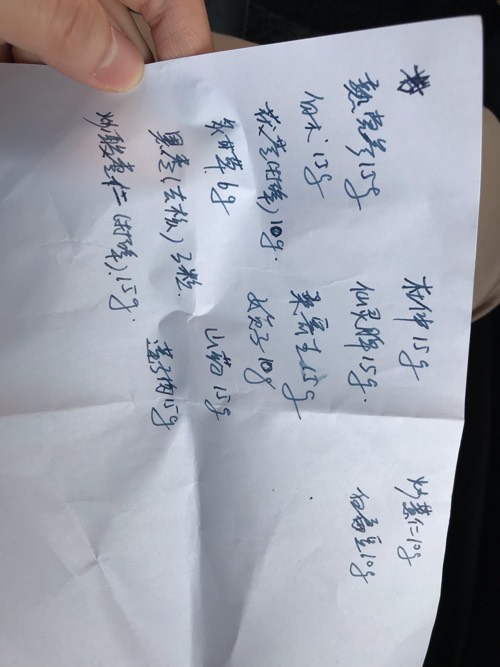 党参15g
白术15g
茯苓(打碎)10g.
炙甘草6g
黑枣(去核)3粒.
炒酸枣仁(打碎)15g.
杜仲15g
仙灵脾15g.
桑寄生15g
女贞子10g
山药15g
莲子肉15g
炒薏仁10g
白扁豆10g